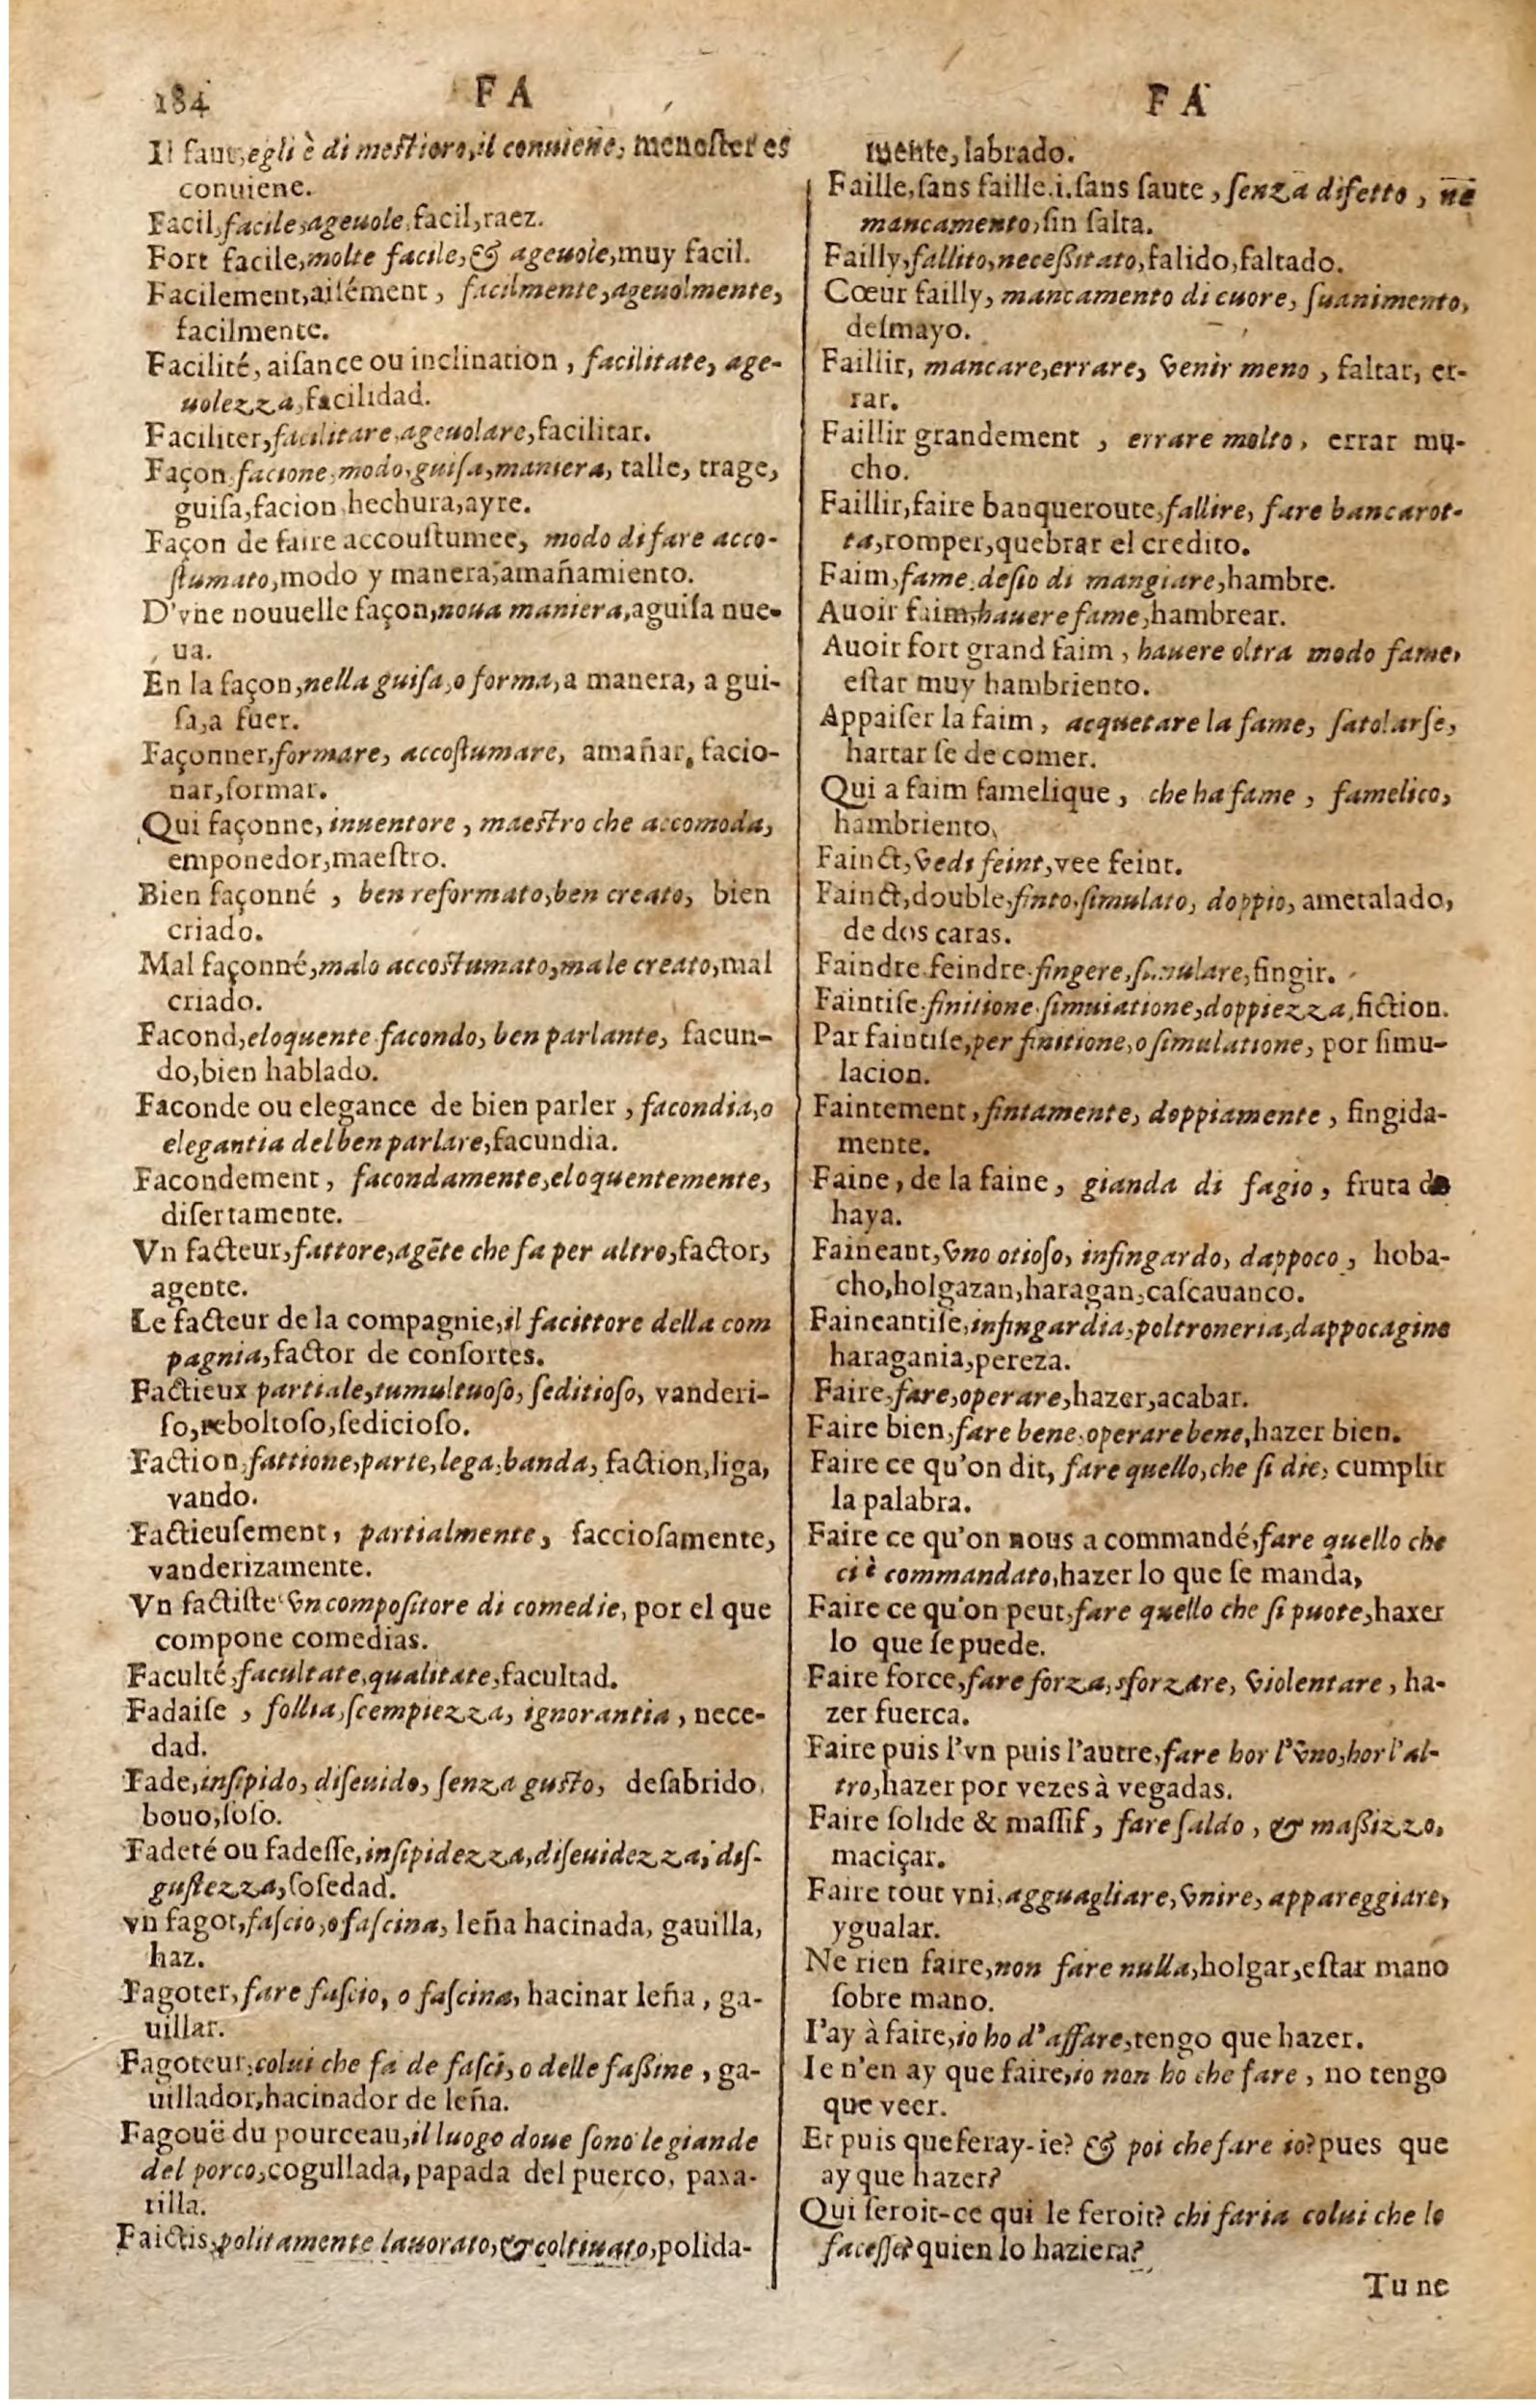 184 FA
Il faut, egli è di mestiero, il conuiene, menester es
conuiene.
Facil, facile, ageuole, facil, raez.
Fort facile, molte facile, & ageuole, muy facil.
Facilement, aiſément, facilmente, ageuolmente,
facilmente.
Facilité, aiſance ou inclination, facilitate, age-
uolezza, facilidad.
Faciliter, facilitare, ageuolare, facilitar.
Façon, facione, modo, guiſa, maniera, talle, trage,
guiſa, facion, hechura, ayre.
Façon de faire accouſtumee, modo di fare acco-
ſtumato, modo y manera, amañamiento.
D'vne nouuelle façon, noua maniera, aguiſa nue-
ua.
En la façon, nella guiſa, o forma, a manera, a gui-
ſa, a fuer.
Façonner, formare, accoſtumare, amañar, facio-
nar, formar.
Qui façonne, inuentore, maeſtro che accomoda,
emponedor, maeſtro.
Bien façonné, ben reformato, ben creato, bien
criado.
Mal façonné, malo accoſtumato, male creato, mal
criado.
Facond, eloquente facondo, ben parlante, facun-
do, bien hablado.
Faconde ou elegance de bien parler, facondia, o
elegantia del ben parlare, facundia.
Facondement, facondamente, eloquentemente,
diſertamente.
Vn facteur, fattore, agẽte che fa per altro, factor,
agente.
Le facteur de la compagnie, il facittore della com
pagnia, factor de conſortes.
Factieux partiale, tumultuoſo, ſeditioſo, vanderi-
ſo, reboltoſo, ſedicioſo.
Faction, fattione, parte, lega, banda, faction, liga,
vando.
Factieuſement, partialmente, facciosamente,
vanderizamente.
Vn factiſte vn compoſitore di comedie, por el que
compone comedias.
Faculté, facultate, qualitate, facultad.
Fadaiſe, follia, ſcempiezza, ignorantia, nece-
dad.
Fade, inſipido, diſeuido, ſenza guſto, deſabrido,
bouo, ſoſo.
Fadeté ou fadeſſe, inſipidezza, diſeuidezza, diſ-
guſtezza, ſoſedad.
vn fagot, faſcio, o faſcina, leña hacinada, gauilla,
haz.
Fagoter, fare faſcio, o faſcina, hacinar leña, ga-
uillar.
Fagoteur, colui che fa de faſci, o delle faßine, ga-
uillador, hacinador de leña.
Fagouë du pourceau, il luogo doue ſono le giande
del porco, cogullada, papada del puerco, paxa-
rilla.
Faictis, politamente lauorato, & coltiuato, polida-
FA
mente, labrado.
Faille, ſans faille .i. ſans faute, ſenza difetto, nē
mancamento, ſin falta.
Failly, fallito, neceßitato, falido, faltado.
Cœur failly, mancamento di cuore, ſuanimento,
deſmayo.
Faillir, mancare, errare, venir meno, faltar, er-
rar.
Faillir grandement, errare molto, errar mu-
cho.
Faillir, faire banqueroute, fallire, fare bancarot-
ta, romper, quebrar el credito.
Faim, fame, deſio di mangiare, hambre.
Auoir faim, hauere fame, hambrear.
Auoir fort grand faim, hauere oltra modo fame,
eſtar muy hambriento.
Appaiſer la faim, acquetare la fame, ſatolarſe,
hartar ſe de comer.
Qui a faim famelique, che ha fame, famelico,
hambriento.
Fainct, vedi feint, vee feint.
Fainct, double, finto, ſimulato, doppio, ametalado,
de dos caras.
Faindre feindre fingere, ſimulare, fingir.
Faintiſe finitione ſimulatione, doppiezza, fiction.
Par faintiſe, per finitione, o ſimulatione, por ſimu-
lacion.
Faintement, fintamente, doppiamente, fingida-
mente.
Faine, de la faine, gianda di fagio, fruta de
haya.
Faineant, vno otioſo, infingardo, dappoco, hoba-
cho, holgazan, haragan, caſcauanco.
Faineantiſe, infingardia, poltroneria, dappocagine
haragania, pereza.
Faire, fare, operare, hazer, acabar.
Faire bien, fare bene, operare bene, hazer bien.
Faire ce qu'on dit, fare quello, che ſi dic, cumplir
la palabra.
Faire ce qu'on nous a commandé, fare quello che
ci è commandato, hazer lo que ſe manda,
Faire ce qu'on peut, fare quello che ſi puote, haxer
lo que ſe puede.
Faire force, fare forza, sforzare, violentare, ha-
zer fuerca.
Faire puis l'vn puis l'autre, fare hor l'vno, hor l'al-
tro, hazer por vezes à vegadas.
Faire ſolide & maſſif, fare ſaldo, & maßizzo,
maciçar.
Faire tout vni, agguagliare, vnire, appareggiare,
ygualar.
Ne rien faire, non fare nulla, holgar, eſtar mano
ſobre mano.
I'ay à faire, io ho d'affare, tengo que hazer.
Ie n'en ay que faire, io non ho che fare, no tengo
que veer.
Et puis que feray-ie? & poi che fare io? pues que
ay que hazer?
Qui ſeroit-ce qui le feroit? chi faria colui che lo
faceſſe? quien lo haziera?
Tu ne